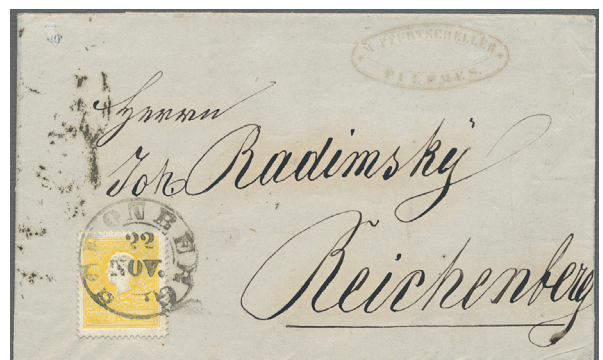 M. PFURTSCHELLER
FULPMES.
Herrn
Joh. Radimsky
Reichenberg
SCHÖNBERG
22
NOV.